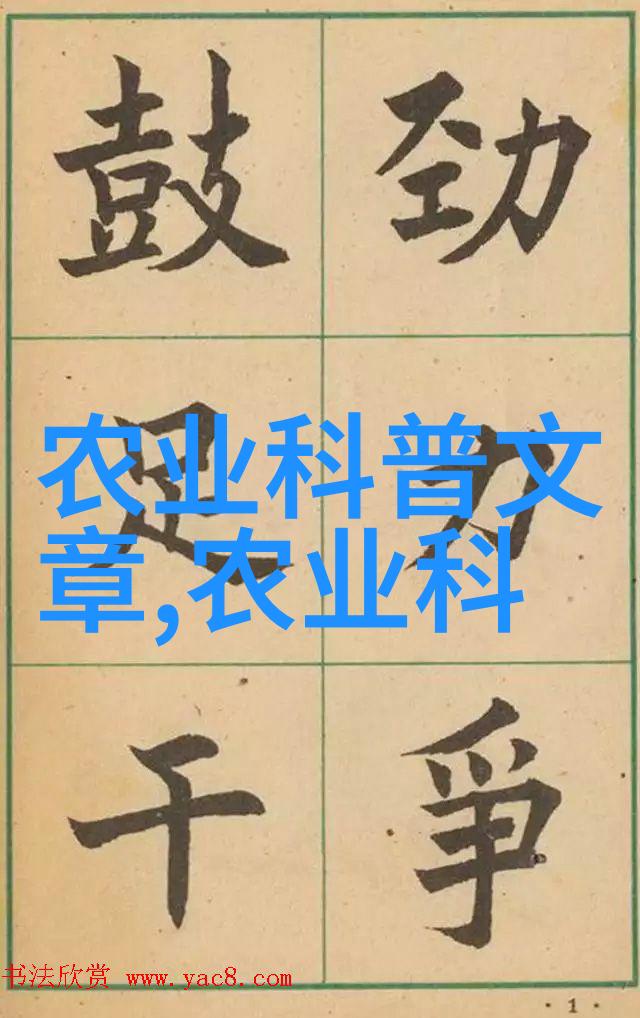 鼓足干
劲力爭
农业科普文
章,农业科
书法欣赏 www.yac8.com
·1·